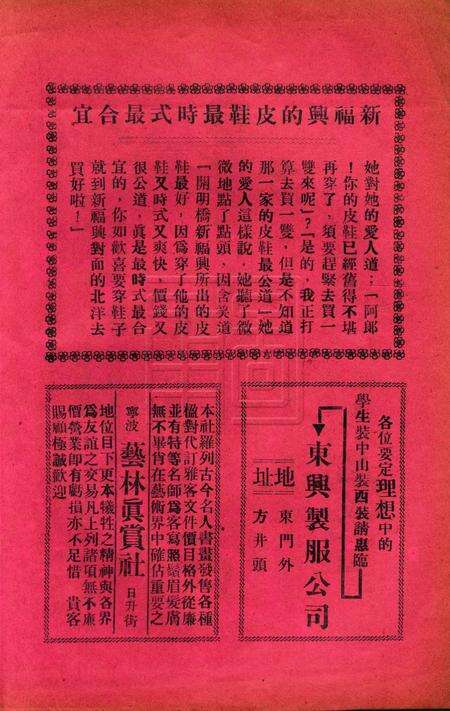 新福興的皮鞋最時式最合宜
她對她的愛人道：「阿郎
！你的皮鞋已經舊得不堪
再穿了，須要趕緊去買一
雙來呢」？「是的，我正打
算去買一雙，但是不知道
那一家的皮鞋最公道」她
的愛人這樣說，她聽了微
微地點了點頭，因含笑道
「開明橋新福興所出的皮
鞋最好，因爲穿了他的皮
鞋又時式又爽快，價錢又
很公道，眞是最時式最合
宜的，你如歡喜要穿鞋子
就到新福興對面的北洋去
買好啦！」
各位要定理想中的
學生裝中山裝西裝請惠臨
東興製服公司
地址
東門外
方井頭
本社羅列古今名人書畫發售各種
楹對代訂雅客文件價目格外從廉
並有特等名師爲客寫照鬚眉髮膚
無不畢肖在藝術界中確佔重要之
寧波 藝林眞賞社 日升街
地位目下更本犧牲之精神與各界
爲友誼之交易凡上列諸項無不廉
價營業即有虧損亦不足惜 貴客
賜顧極誠歡迎